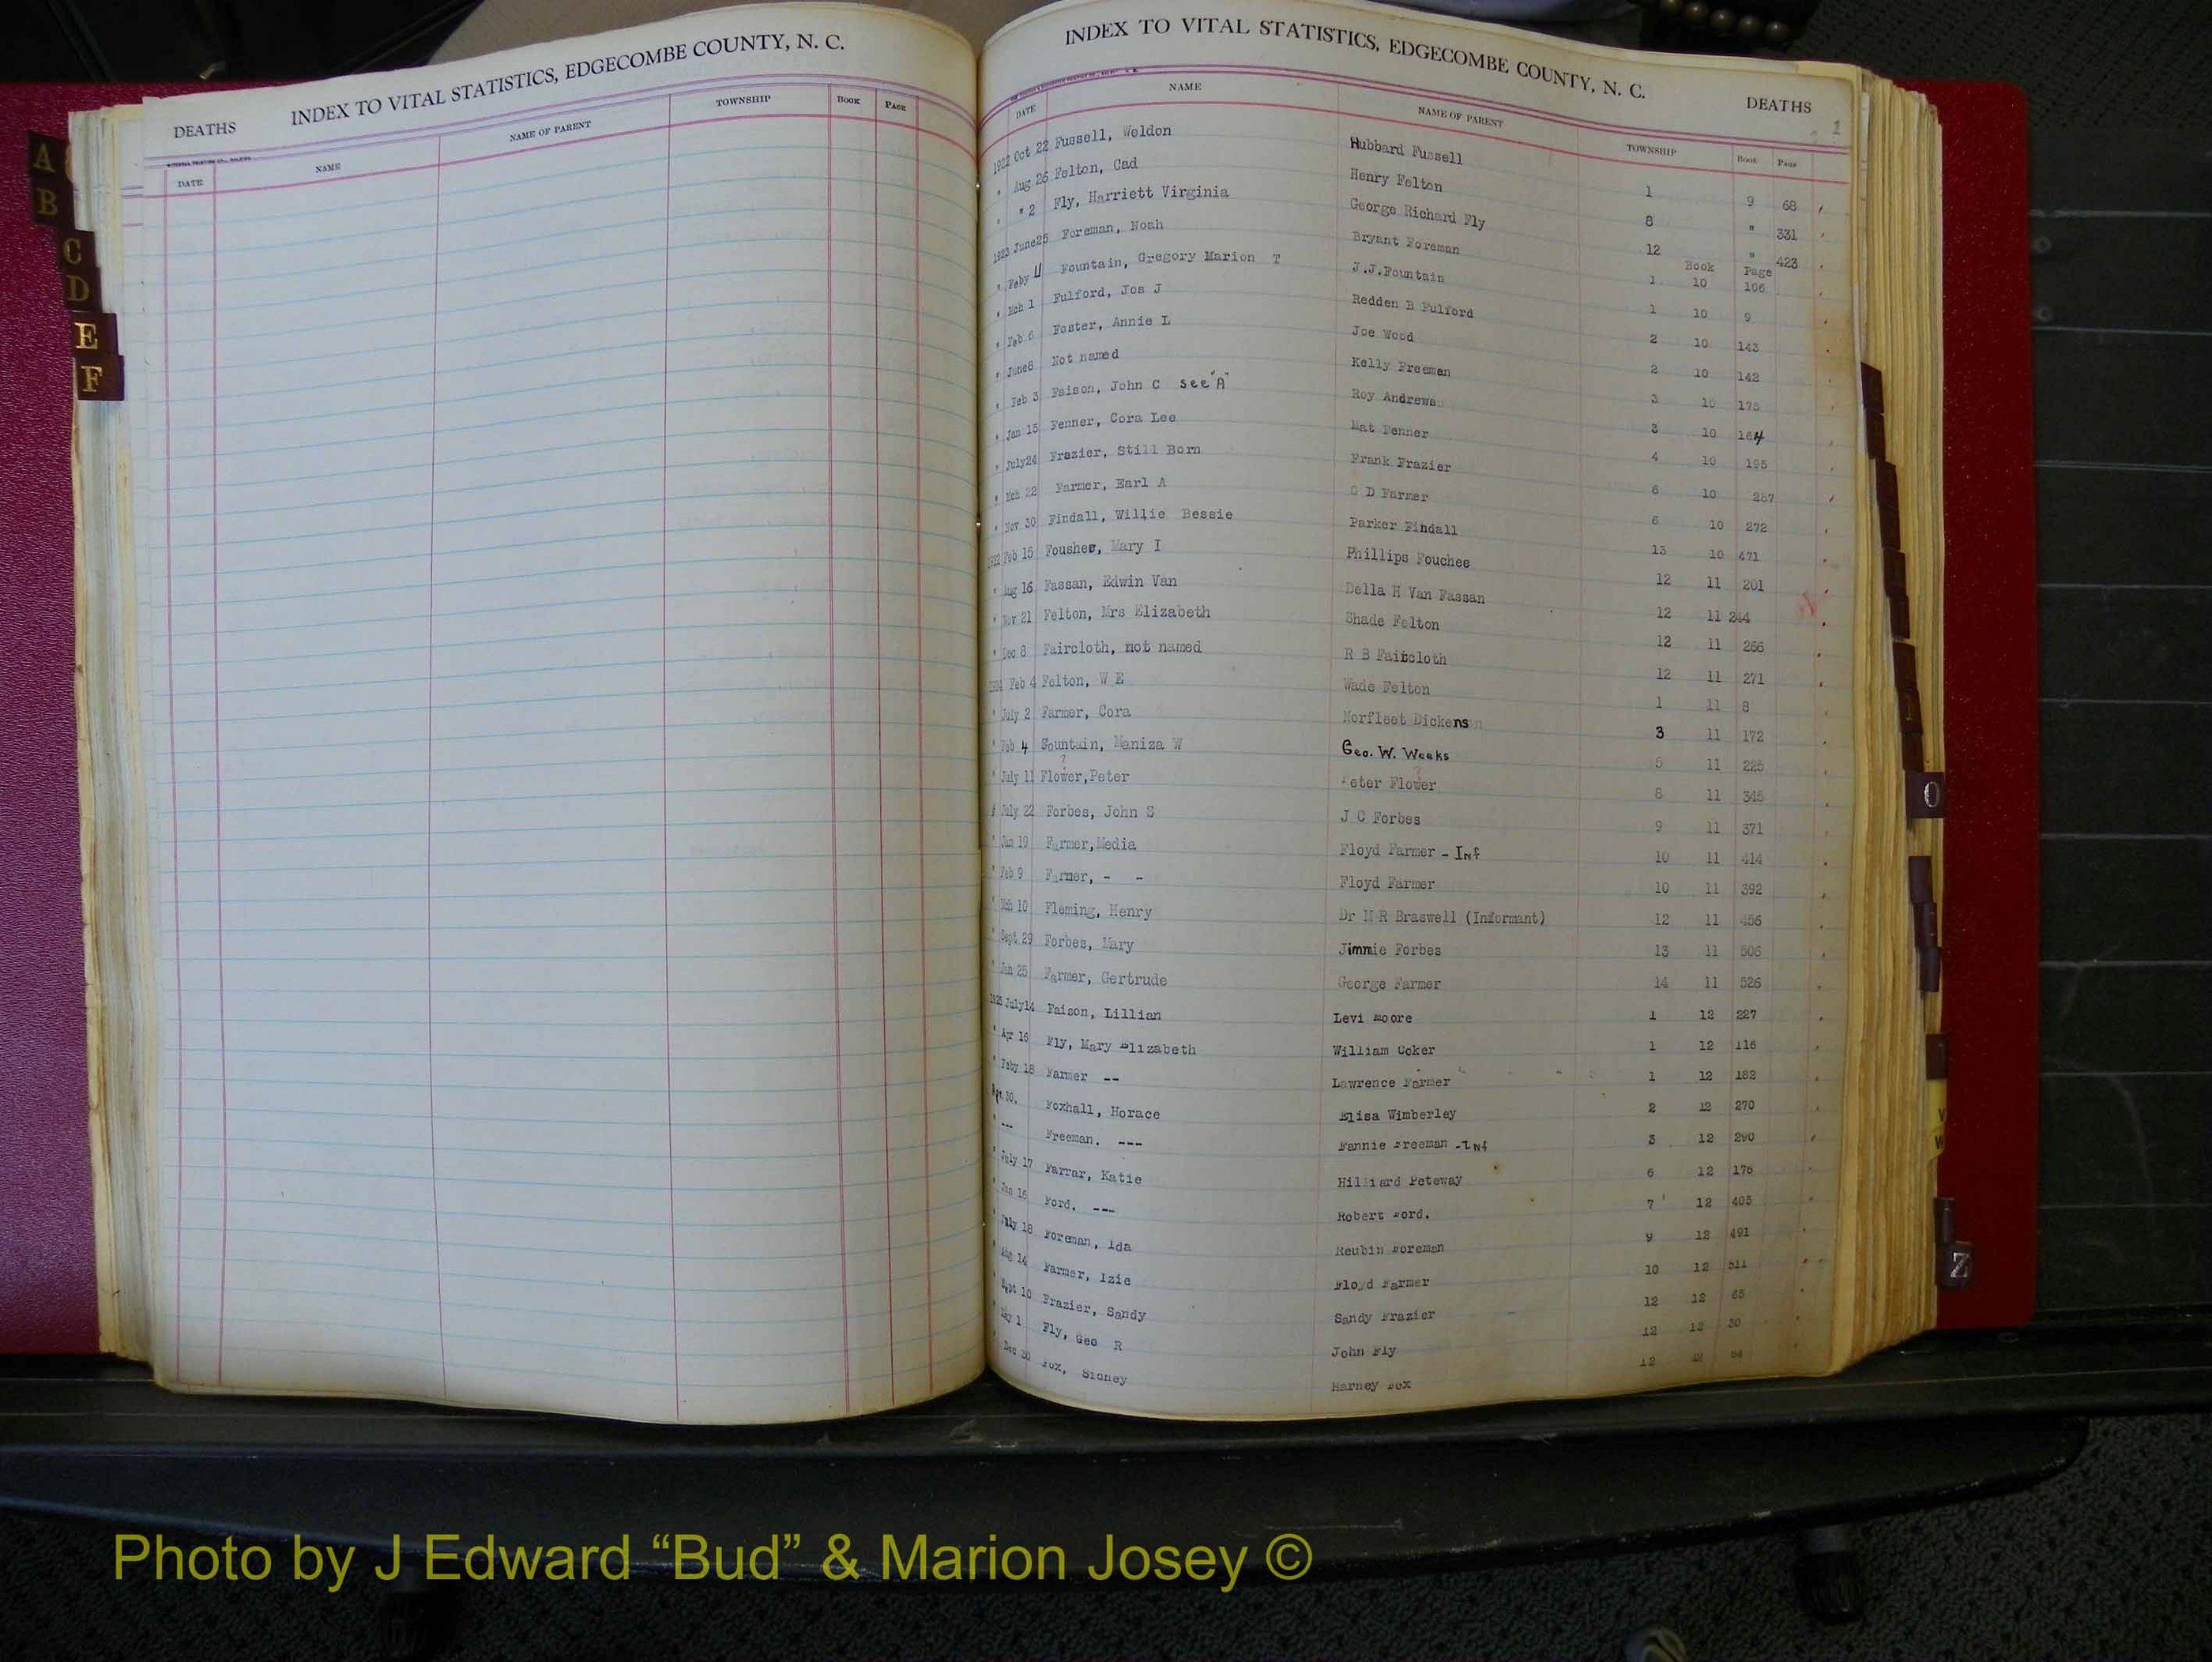 INDEX TO VITAL STATISTICS, EDGECOMBE COUNTY, N. C.
DEATHS
DATE NAME NAME OF PARENT TOWNSHIP BOOK PAGE
A
B
C
D
E
F
INDEX TO VITAL STATISTICS, EDGECOMBE COUNTY, N. C.
DEATHS
1
DATE NAME NAME OF PARENT TOWNSHIP BOOK PAGE
1922 Oct 22 Fussell, Weldon Hubbard Fussell 1 9 68
" Aug 26 Felton, Cad Henry Felton 8 " 331
" " 2 Fly, Harriett Virginia George Richard Fly 12 " 423
Book Page
1923 June25 Foreman, Noah Bryant Foreman 1 10 106
" Feby 11 Fountain, Gregory Marion T J.J.Fountain 1 10 9
" Mch 1 Fulford, Jos J Redden B Fulford 2 10 143
" Feb 6 Foster, Annie L Joe Wood 2 10 142
" June8 Not named Kelly Freeman 3 10 175
" Feb 3 Faison, John C see "A" Roy Andrews 3 10 164
" Jan 15 Fenner, Cora Lee Mat Fenner 4 10 195
" July24 Frazier, Still Born Frank Frazier 6 10 287
" Mch 22 Farmer, Earl A D Farmer 6 10 272
" Nov 30 Findall, Willie Bessie Parker Findall 13 10 471
1922 Feb 15 Foushee, Mary I Phillips Fouchee 12 11 201
" Aug 16 Fassan, Edwin Van Della H Van Fassan 12 11 244
" Nov 21 Felton, Mrs Elizabeth Shade Felton 12 11 266
" Dec 8 Faircloth, not named R B Faircloth 12 11 271
1924 Feb 4 Felton, W E Wade Felton 1 11 8
" July 2 Farmer, Cora Norfleet Dickens 3 11 172
" Feb 4 Fountain, Maniza W Geo. W. Weeks 5 11 225
? ?
" July 11 Flower,Peter Peter Flower 8 11 345
" July 22 Forbes, John S J C Forbes 9 11 371
" Jan 19 Farmer,Media Floyd Farmer - Inf 10 11 414
" Feb 9 Farmer, - - Floyd Farmer 10 11 392
" Mch 10 Fleming, Henry Dr M R Braswell (Informant) 12 11 456
" Sept 29 Forbes, Mary Jimmie Forbes 13 11 506
" Jan 25 Farmer, Gertrude George Farmer 14 11 526
1925 July14 Faison, Lillian Levi Moore 1 12 227
" Apr 16 Fly, Mary Elizabeth William Coker 1 12 116
" Feby 18 Farmer -- Lawrence Farmer 1 12 182
Apr. 30. Foxhall, Horace Elisa Wimberley 2 12 270
" --- Freeman. --- Fannie Freeman -Inf 3 12 290
" July 17 Farrar, Katie Hilliard Peteway 6 12 176
" Jan 16 Ford, --- Robert Ford. 7 12 405
" July 18 Foreman, Ida Reubin Foreman 9 12 491
" Aug 14 Farmer, Izie Floyd Farmer 10 12 511
" Sept 10 Frazier, Sandy Sandy Frazier 12 12 65
" May 1 Fly, Geo R John Fly 12 12 30
" Dec 20 Fox, Sidney Harney Fox 12 12
O
V
W
Z
Photo by J Edward “Bud” & Marion Josey ©